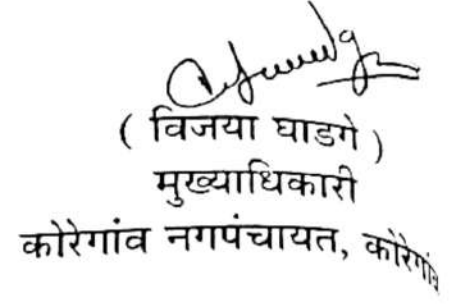 ( विजया घाडगे )
मुख्याधिकारी
कोरेगांव नगपंचायत, कोरेगांव